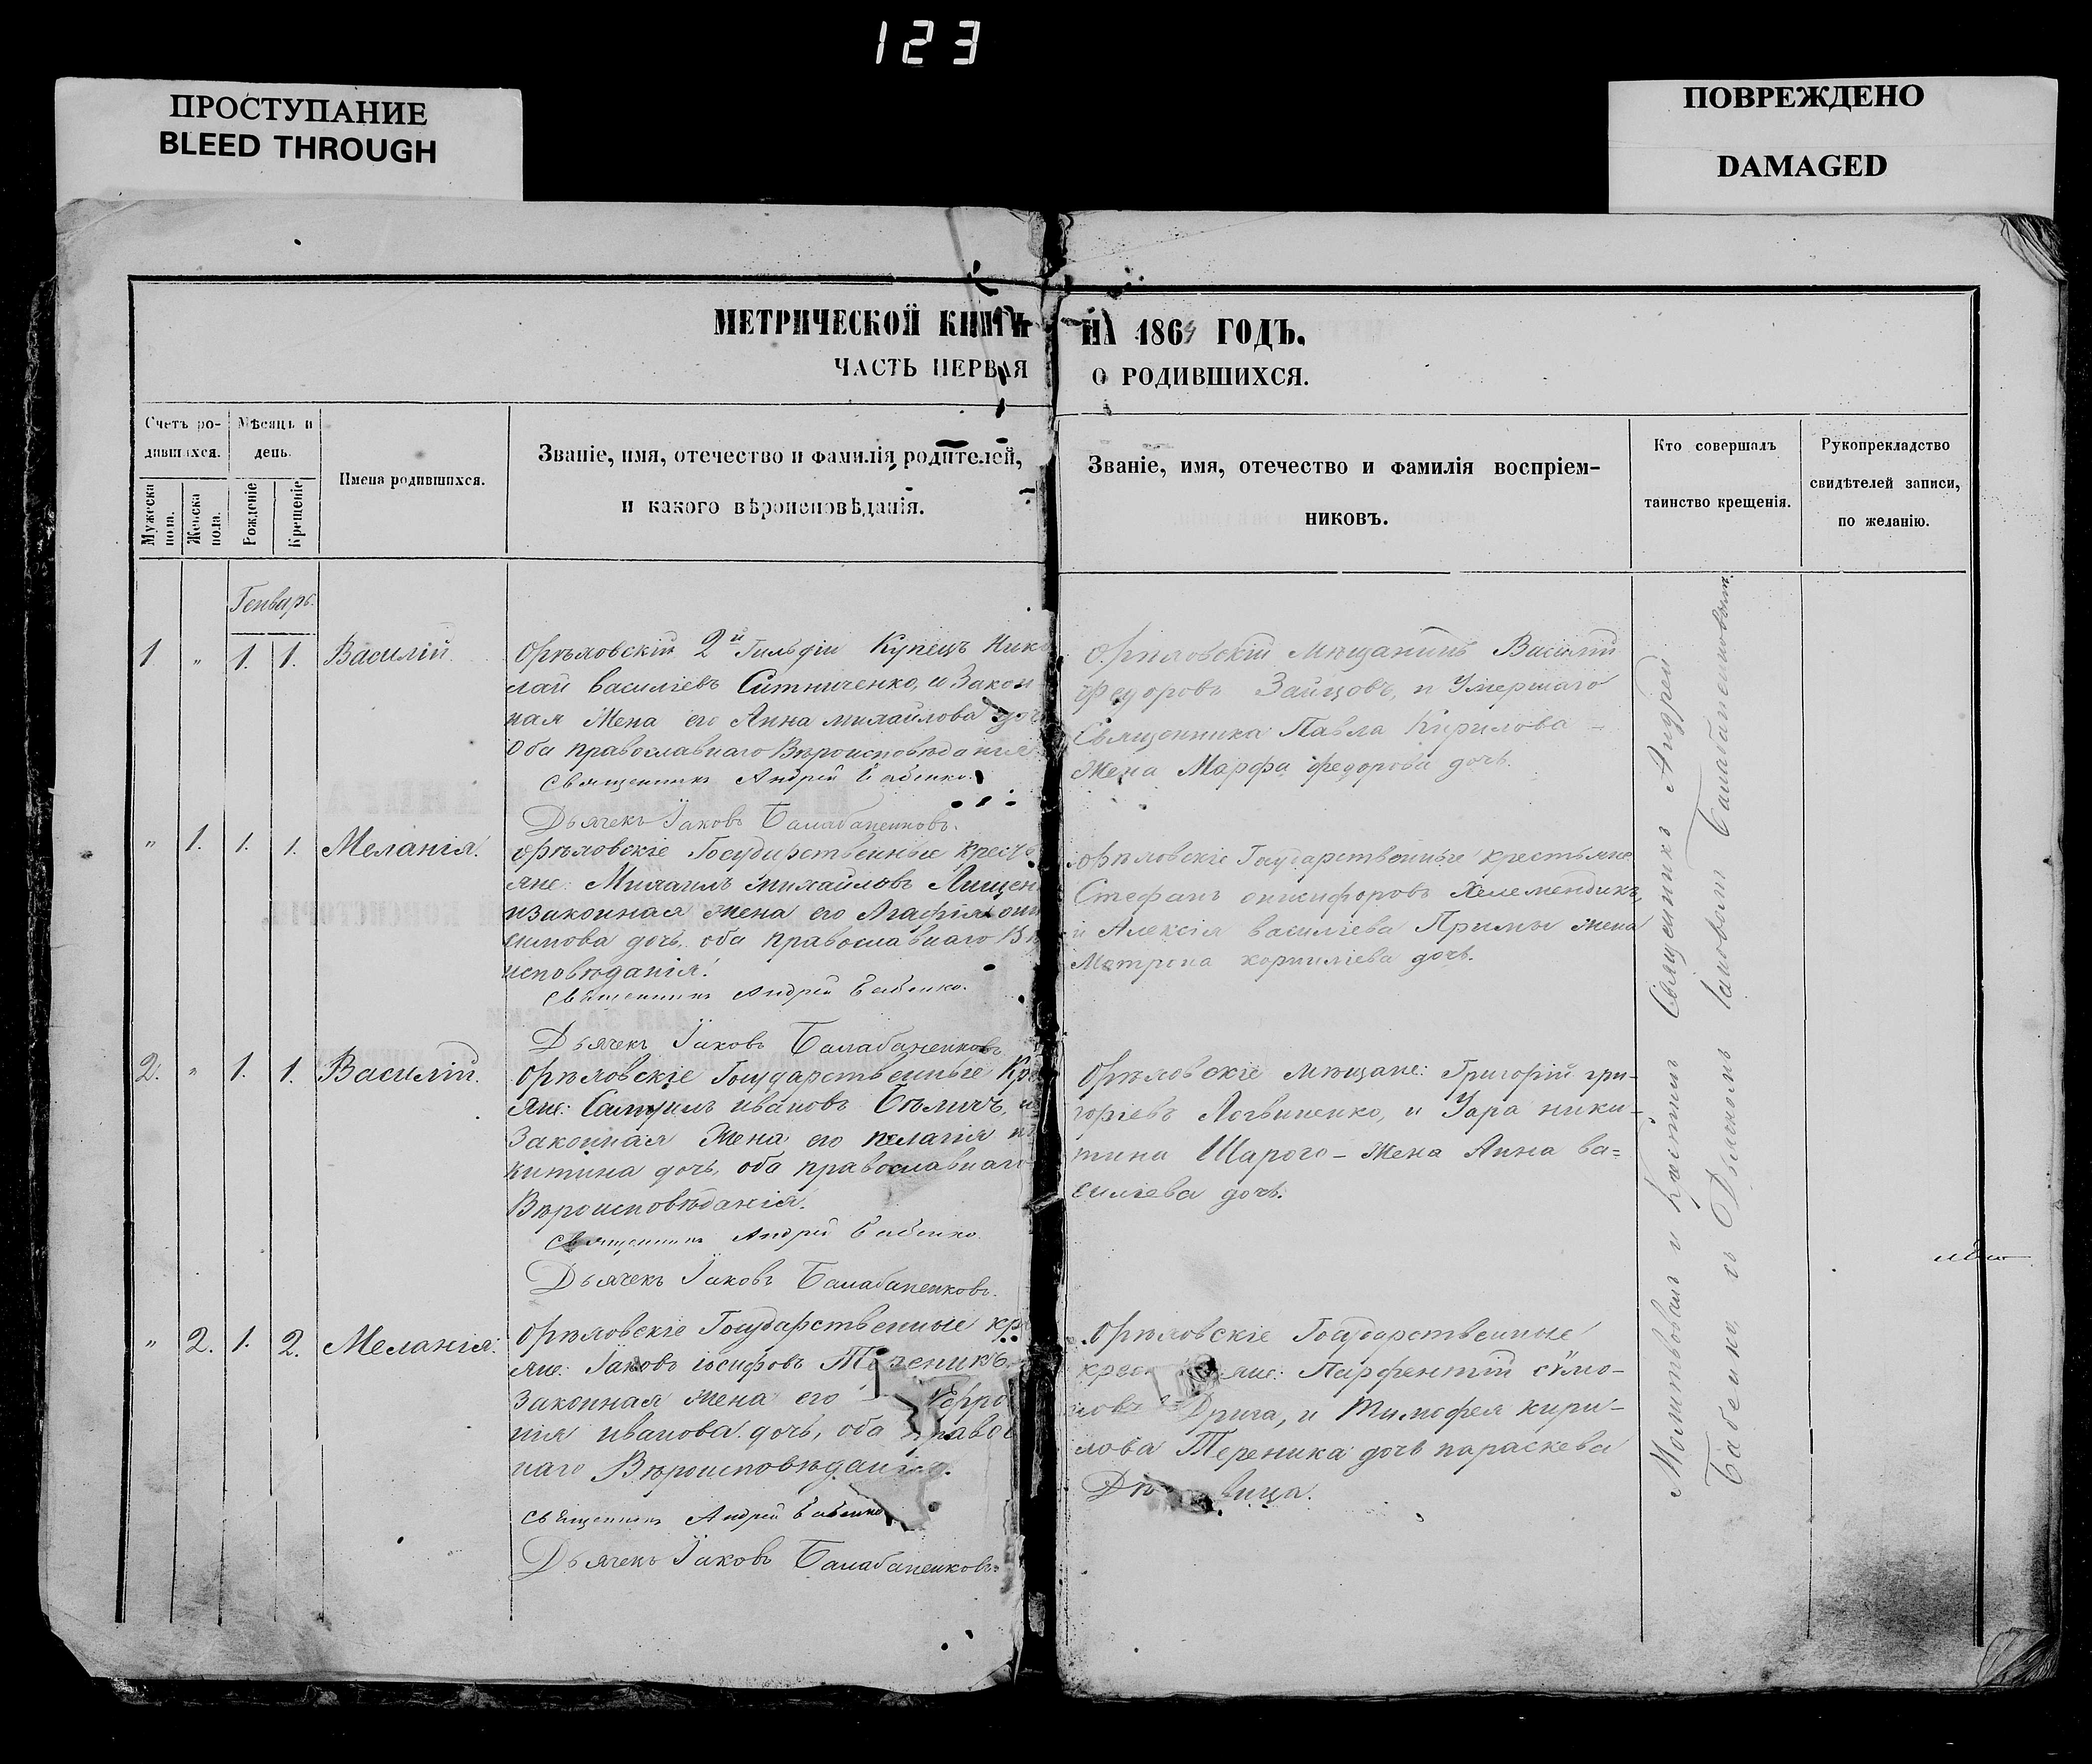 123
ПРОСТУПАНИЕ
BLEED THROUGH
ПОВРЕЖДЕНО
DAMAGED
МЕТРИЧЕСКОЙ КНИГИ НА 1864 ГОДЪ.
ЧАСТЬ ПЕРВАЯ О РОДИВШИХСЯ.
Счетъ ро-
дившихся.
Мужеска
пола.
Женска
пола.
Мѣсяцъ и
день.
Рожденіе
Крещеніе
Имена родившихся.
Званіе, имя, отечество и фамилія родителей,
и какого вѣроисповѣданія.
Званіе, имя, отечество и фамилія воспріем-
никовъ.
Кто совершалъ
таинство крещенія.
Рукоприкладство
свидѣтелей записи,
по желанію.
Генварь.
1 " 1. 1. Василій.
Орѣловскій 2й Гильдіи Купецъ Нико
лай василіевъ Ситниченко, и Закон
ная Жена его Анна михайлова доч
Оба православнаго Вѣроисповѣданія
Священникъ Андрей Бабенко.
Дьячекъ Іаковъ Балабаненковъ.
Орѣловскій Мѣщанинъ Василій
Федоровъ Зайцовъ, и Умершаго
Священника Павла Кирилова -
Жена Марфа федорова дочь.
" 1. 1. 1. Меланія.
Орѣловскіе Государственные крестья
яне: Михаилъ михайловъ Лищен
изаконная жена его Агафія они
симова дочь, оба православнаго Вѣ
исповѣданія.
Священникъ Андрей Бабенко.
Дьячекъ Іаковъ Балабаненковъ
Орѣловскіе Государственные крестьяне
Стефанъ никифоровъ Хелемендикъ,
и Алексія василіева Примы жена
Матрона корниліева дочь.
2. " 1. 1. Василій.
Орѣловскіе Государственные Кре
яне: Самуилъ ивановъ Бѣличъ, и
Законная Жена его пелагія ни
китина дочь, оба православнаго
Вѣроисповѣданія.
Священникъ Андрей Бабенко.
Дьячекъ Іаковъ Балабаненковъ.
Орѣловскіе мѣщане: Григорій гри-
горіевъ Логвиненко, и Уара ники-
тина Шарого - Жена Анна ва=
силіева дочь.
" 2. 1. 2. Меланія.
Орѣловскіе Государственные кр
яне: Іаковъ іосифовъ
Законная жена его
нія иванова дочь, оба правос
наго Вѣроисповѣданія.
Священникъ Андрей Бабенко
Дьячекъ Іаковъ Балабаненковъ.
Орѣловскіе Государственные
крес яне: Парфентій сѵмо-
новъ Дрига, и Тимофея кири-
лова Тереника дочь параскева
Дѣ вица.
Молитвовалъ и Крестилъ Священникъ Андрей
Бабенко, съ Дьячкомъ Іаковомъ Балабаненковымъ.